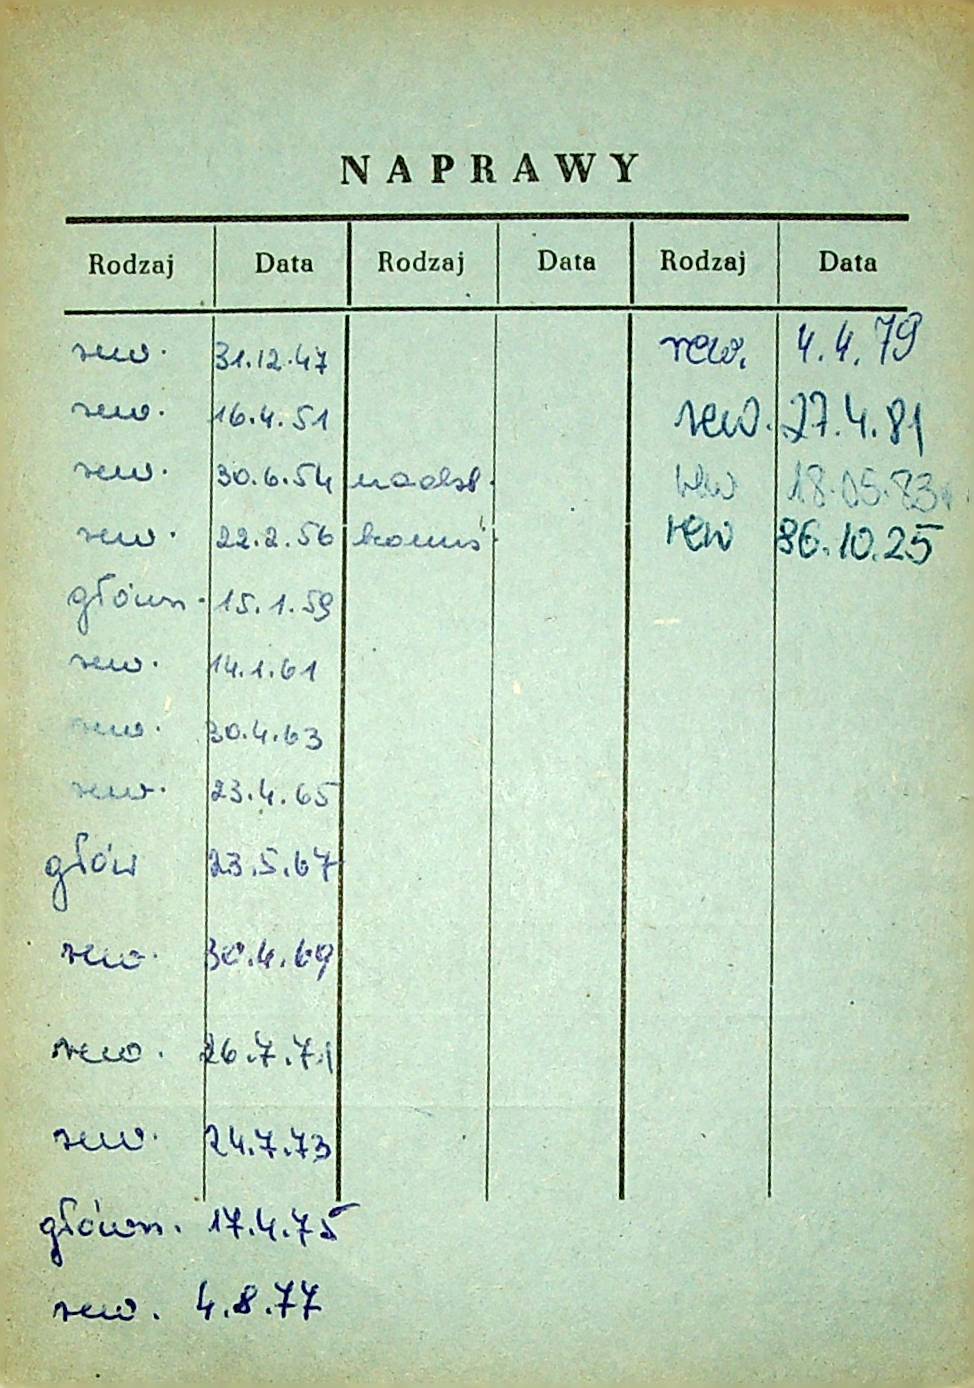 NAPRAWY
Rodzaj Data Rodzaj Data Rodzaj Data
rew. 31.12.47 rew. 4.4.79
rew. 16.4.51 rew. 27.4.81
rew. 30.6.54 nadsl. rew 18.05.83
rew. 22.2.56 rew 86.10.25
główn. 15.1.59
rew. 14.1.61
rew. 30.4.63
rew. 23.4.65
głów 23.5.67
rew. 30.4.69
rew. 26.7.71
rew. 24.7.73
główn. 17.4.75
rew. 4.8.77